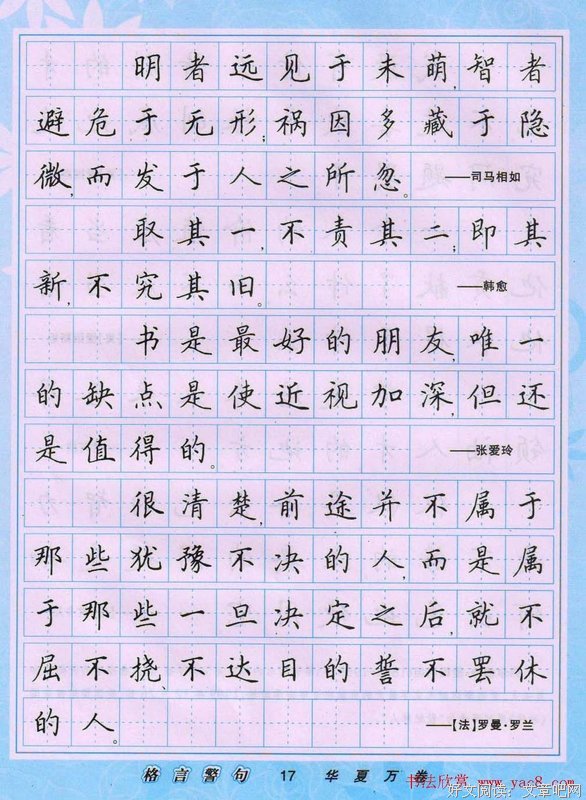 明者远见于未萌,智者
避危于无形,祸因多藏于隐
微,而发于人之所忽。——司马相如
取其一,不责其二;即其
新,不究其旧。——韩愈
书是最好的朋友,唯一
的缺点是使近视加深,但还
是值得的。——张爱玲
很清楚,前途并不属于
那些犹豫不决的人,而是属
于那些一旦决定之后,就不
屈不挠、不达目的誓不罢休
的人。——【法】罗曼·罗兰
格言警句 17 华夏万卷
书法欣赏 www.yac8.com
好文阅读: 文章吧网